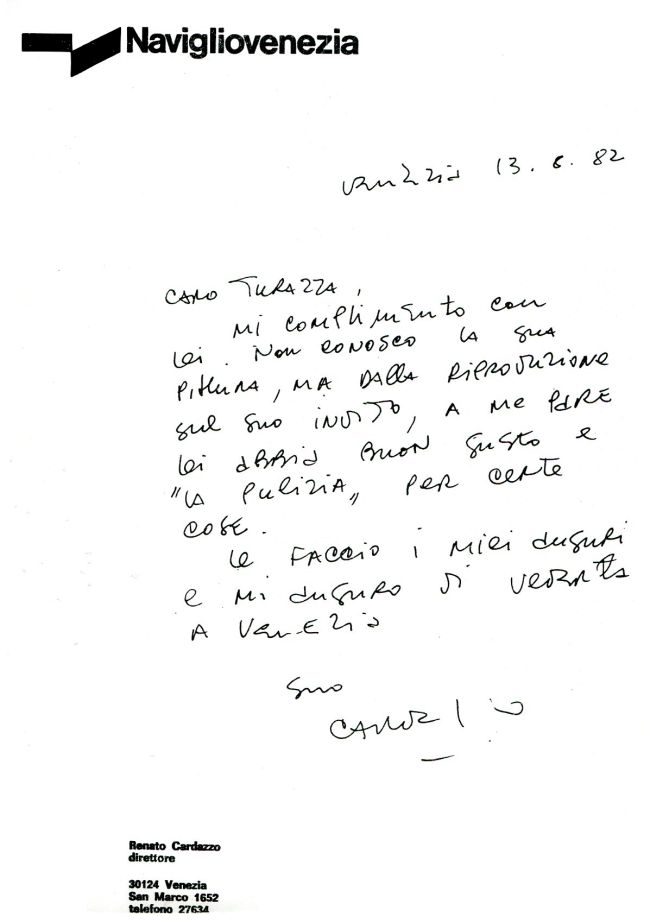 Navigliovenezia
Venezia 13.6.82
CARO TURAZZA,
MI COMPLIMENTO CON
lei. NON CONOSCO LA SUA
PITTURA, MA DALLA RIPRODUZIONE
sul suo INVITO, A ME PARE
lei ABBIA BUON GUSTO e
"LA PULIZIA" PER CERTE
COSE.
le FACCIO i MIEI AUGURI
e MI AUGURO DI VEDERLA
A VENEZIA
Suo
Renato Cardazzo
direttore
30124 Venezia
San Marco 1652
telefono 27634